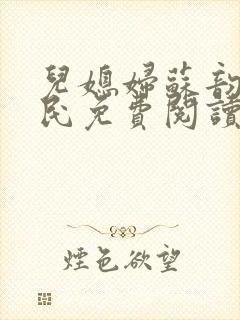 兒媳婦蘇韵
民免費閱讀
煙色欲望